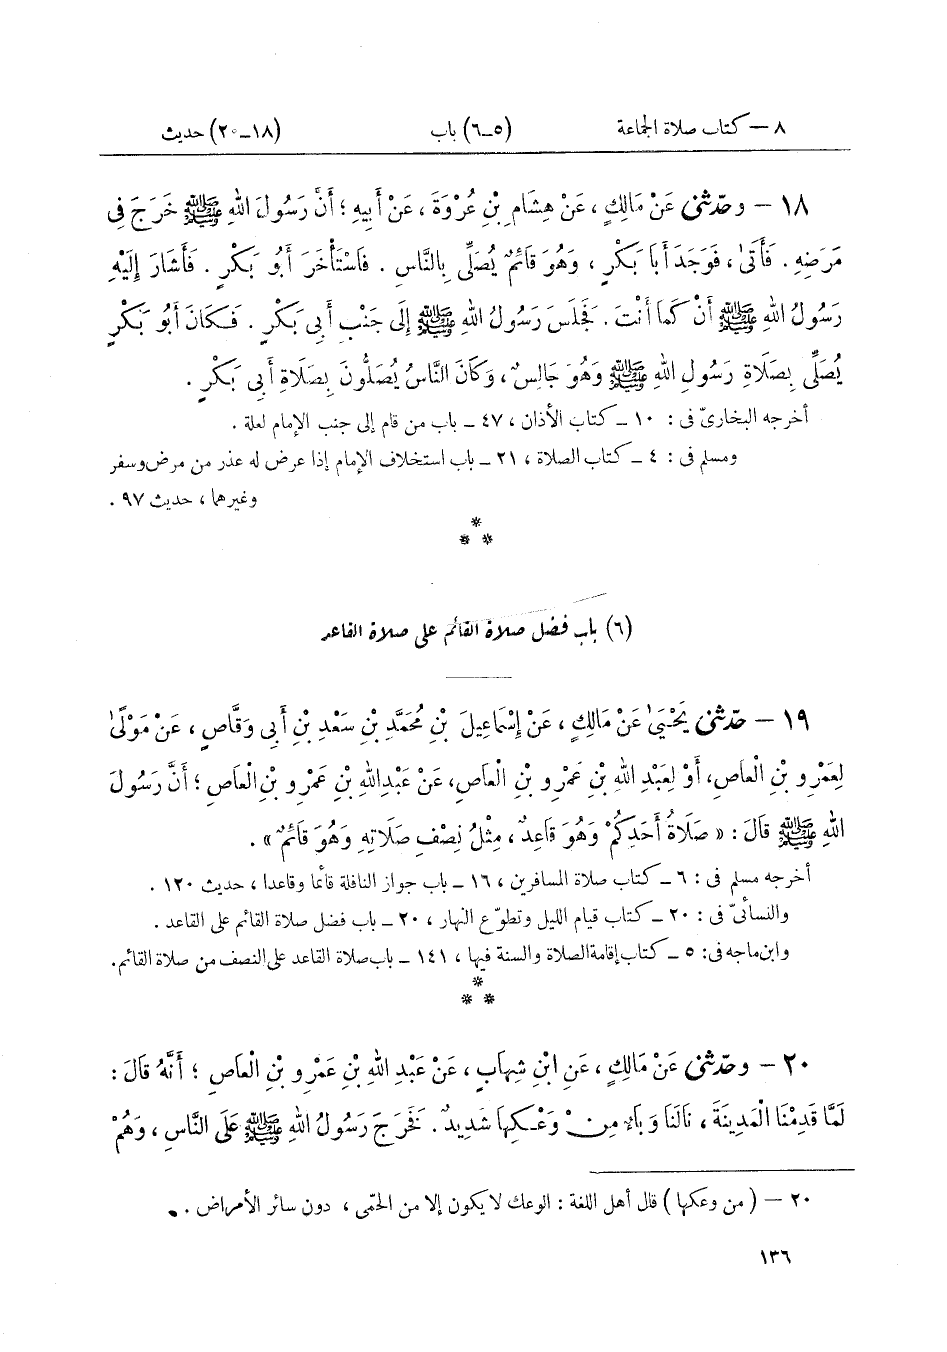 ٨ – كتاب صلاة الجماعة (٥–٦) باب (١٨–٢٠) حديث
١٨ – وحدّثنى عَنْ مَالِكٍ ، عَنْ هِشَامِ بْنِ عُرْوَةَ ، عَنْ أَبِيهِ ؛ أَنَّ رَسُولَ اللهِ ﷺ خَرَجَ فِى
مَرَضِهِ . فَأَتَىٰ ، فَوَجَدَ أَبَا بَكْرٍ ، وَهُوَ قَائِمٌ يُصَلِّى بِالنَّاسِ . فَاسْتَأْخَرَ أَبُو بَكْرٍ . فَأَشَارَ إِلَيْهِ
رَسُولُ اللهِ ﷺ أَنْ كَمَا أَنْتَ . فَجَلَسَ رَسُولُ اللهِ ﷺ إِلَى جَنْبِ أَبِى بَكْرٍ . فَكَانَ أَبُو بَكْرٍ
يُصَلِّى بِصَلَاةِ رَسُولِ اللهِ ﷺ وَهُوَ جَالِسٌ ، وَكَانَ النَّاسُ يُصَلُّونَ بِصَلَاةِ أَبِى بَكْرٍ .
أخرجه البخارىّ فى : ١٠ – كتاب الأذان ، ٤٧ – باب من قام إلى جنب الإمام لعلة .
ومسلم فى : ٤ – كتاب الصلاة ، ٢١ – باب استخلاف الإمام إذا عرض له عذر من مرض وسفر
وغيرهما ، حديث ٩٧ .
*
* *
(٦) باب فضل صلاة القائم على صلاة القاعد
١٩ – حدّثنى يَحْيَىٰ عَنْ مَالِكٍ ، عَنْ إِسْمَاعِيلَ بْنِ مُحَمَّدِ بْنِ سَعْدِ بْنِ أَبِى وَقَّاصٍ ، عَنْ مَوْلًى
لِعَمْرِو بْنِ الْعَاصِ، أَوْ لِعَبْدِ اللهِ بْنِ عَمْرِو بْنِ الْعَاصِ، عَنْ عَبْدِ اللهِ بْنِ عَمْرِو بْنِ الْعَاصِ ؛ أَنَّ رَسُولَ
اللهِ ﷺ قَالَ : « صَلَاةُ أَحَدِكُمْ وَهُوَ قَاعِدٌ ، مِثْلُ نِصْفِ صَلَاتِهِ وَهُوَ قَائِمٌ » .
أخرجه مسلم فى : ٦ – كتاب صلاة المسافرين ، ١٦ – باب جواز النافلة قائما وقاعدا ، حديث ١٢٠ .
والنسائىّ فى : ٢٠ – كتاب قيام الليل وتطوّع النهار ، ٢٠ – باب فضل صلاة القائم على القاعد .
وابن ماجه فى: ٥ – كتاب إقامة الصلاة والسنة فيها ، ١٤١ – باب صلاة القاعد على النصف من صلاة القائم.
*
* *
٢٠ – وحدّثنى عَنْ مَالِكٍ ، عَنِ ابْنِ شِهَابٍ ، عَنْ عَبْدِ اللهِ بْنِ عَمْرِو بْنِ الْعَاصِ ؛ أَنَّهُ قَالَ :
لَمَّا قَدِمْنَا الْمَدِينَةَ ، نَالَنَا وَبَاءٌ مِنْ وَعْكِهَا شَدِيدٌ . فَخَرَجَ رَسُولُ اللهِ ﷺ عَلَى النَّاسِ ، وَهُمْ
٢٠ – ( من وعكها ) قال أهل اللغة : الوعك لا يكون إلا من الحمّى ، دون سائر الأمراض .
١٣٦